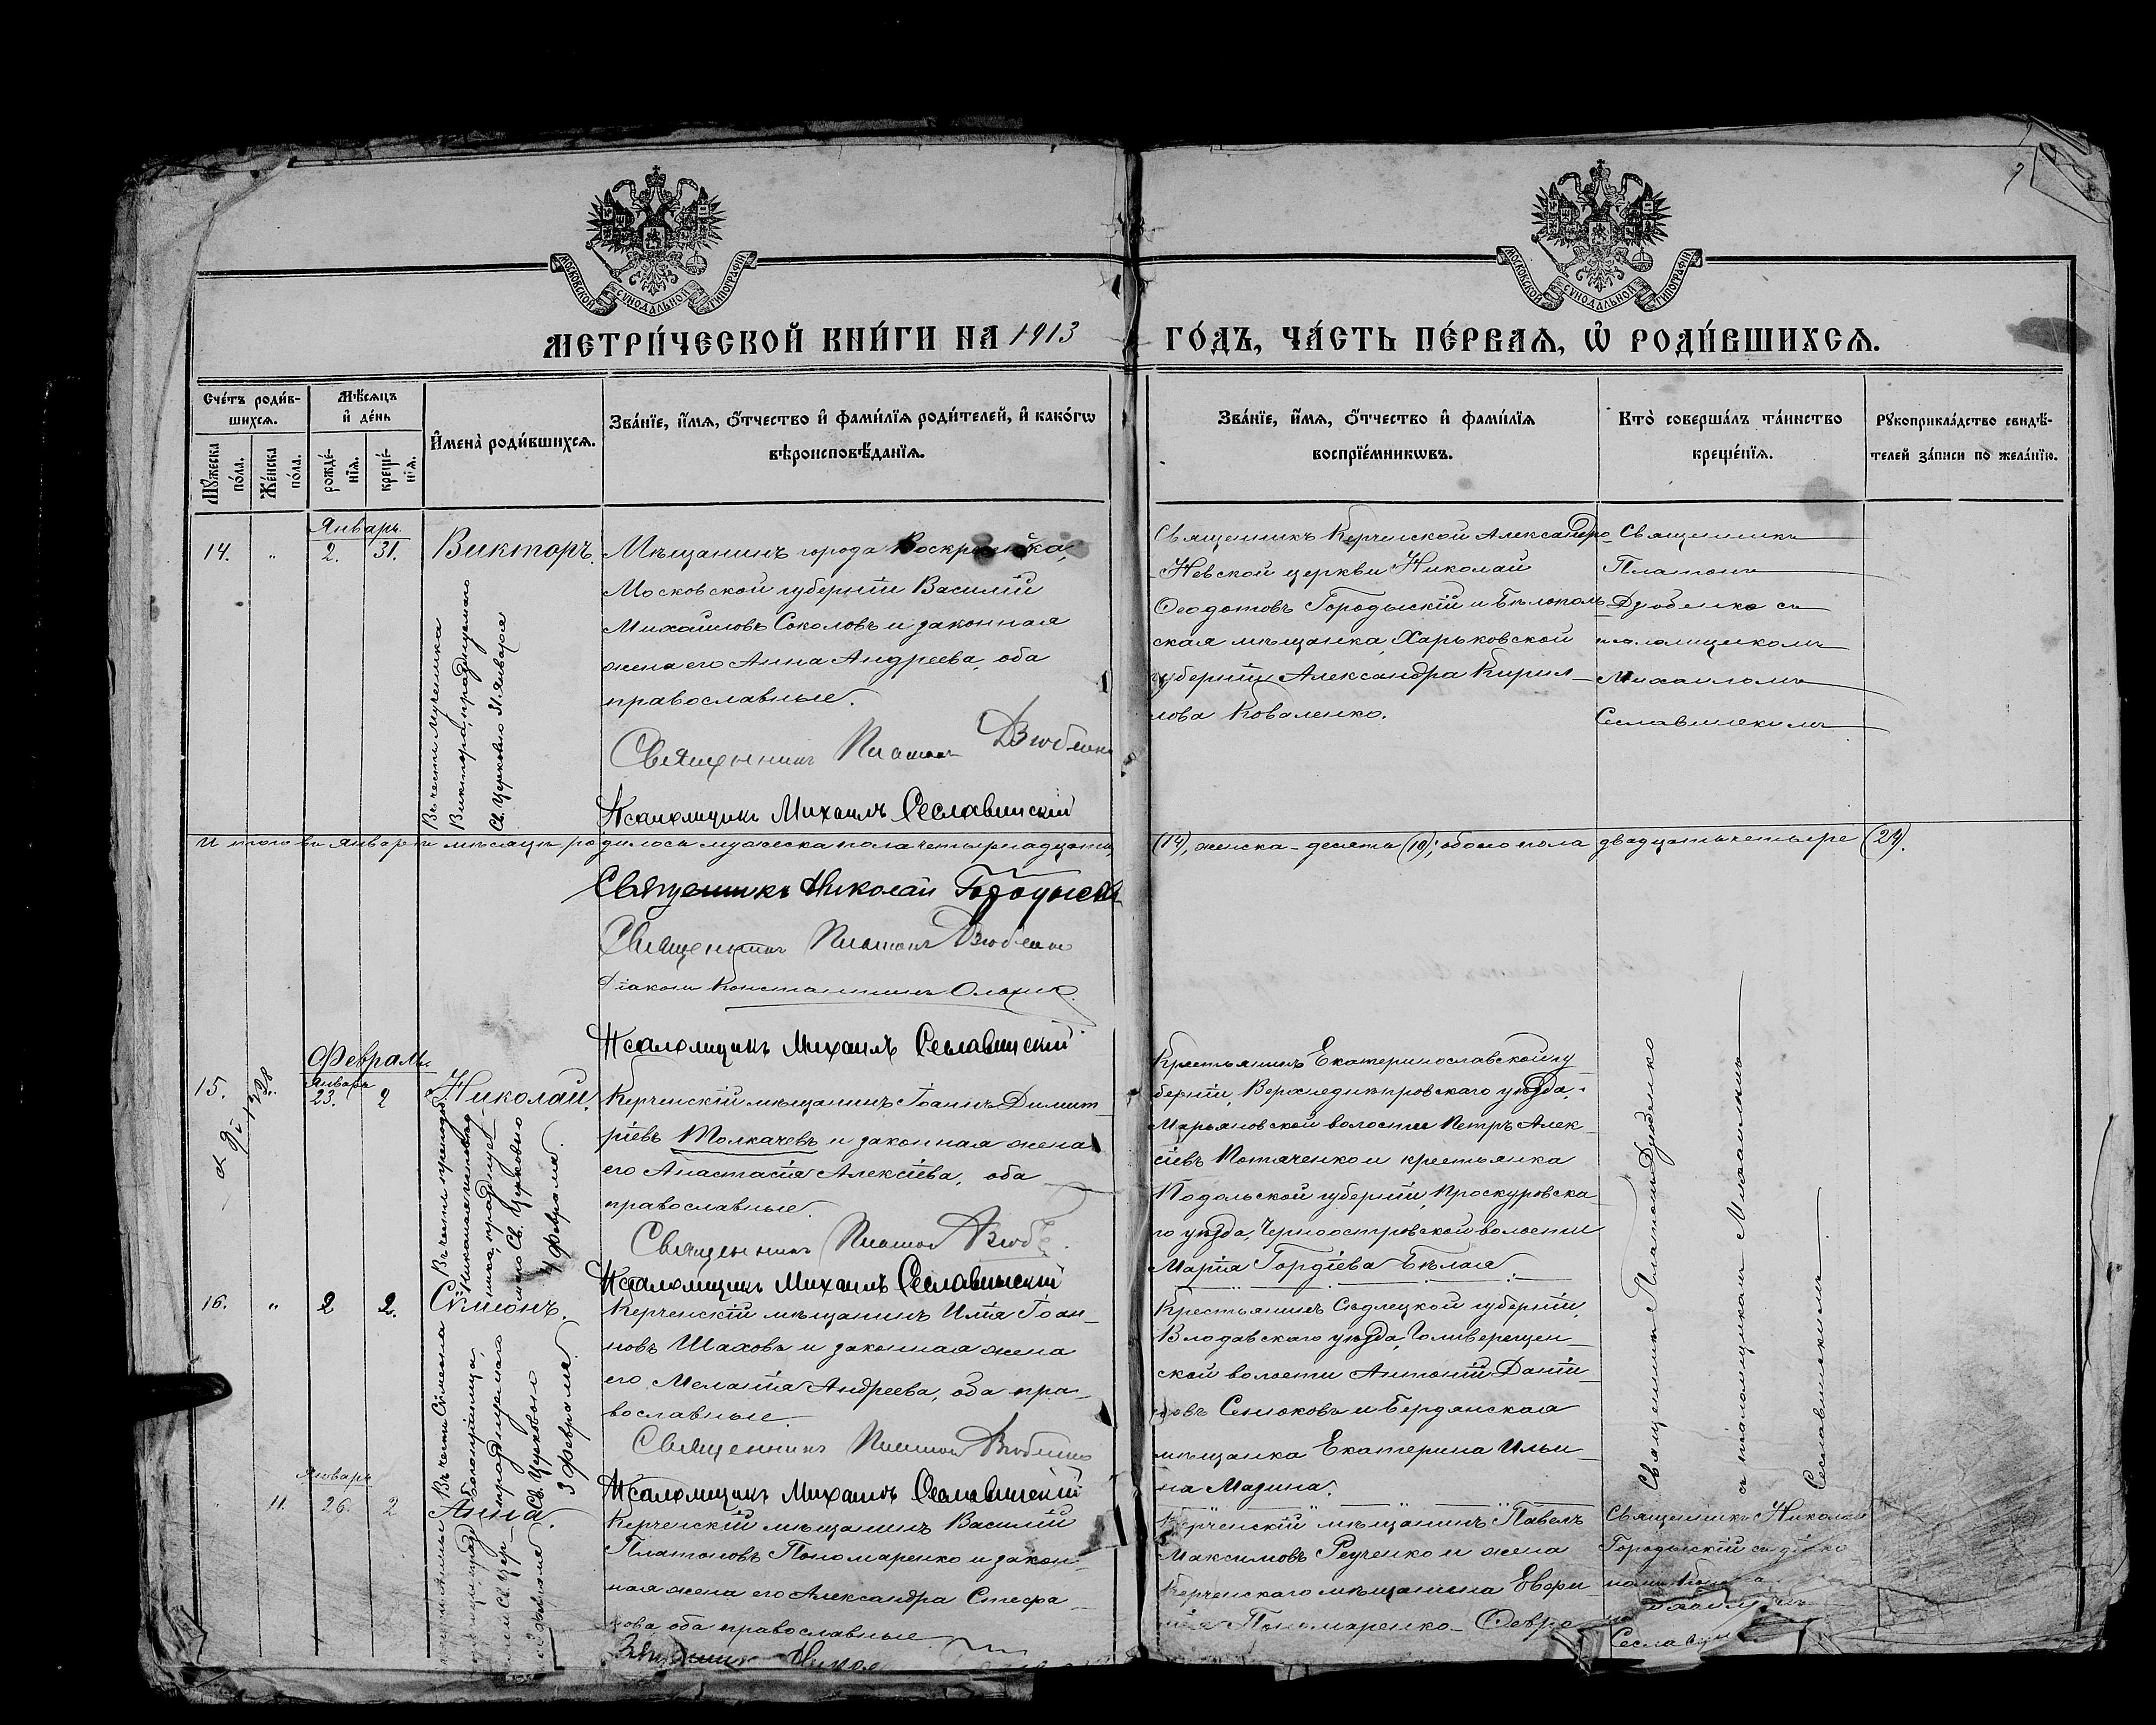 МОСКОВСКОЙ СѴНОДАЛЬНОЙ ТИПОГРАФІИ
МОСКОВСКОЙ СѴНОДАЛЬНОЙ ТИПОГРАФІИ
МЕТРИ́ЧЕСКОЙ КНИ́ГИ НА 1913
ГО́ДЪ, ЧА́СТЬ ПЕ́РВАѦ, Ѡ҆ РОДИ́ВШИХСѦ.
Сче́тъ роди́в-
шихсѧ.
Мѣ́сѧцъ
и҆ де́нь
Мꙋжеска
по́ла.
Же́нска
по́ла.
рожде́-
нїѧ.
креще́-
нїѧ.
И҆мена̀ роди́вшихсѧ.
Зва́нїе, и҆́мѧ, ѻ҆́тчество и҆ фами́лїѧ роди́телей, и҆ како́гѡ
вѣроисповѣ́данїѧ.
Зва́нїе, и҆́мѧ, ѻ҆́тчество и҆ фами́лїѧ
воспрїе́мникѡвъ.
Кто̀ соверша́лъ та́инство
креще́нїѧ.
Рꙋкоприкла́дство свидѣ́-
телей за́писи по жела́нїю.
Январь.
14. " 2. 31. Викторъ.
Въ честь мученика
Виктора, празднуемаго
Св. Церковью 31 января
Мѣщанинъ города Воскресенска,
Московской губерніи Василій
Михаиловъ Соколовъ и законная
жена его Анна Андреева, оба
православные.
Священникъ Платонъ Дзюбенко
Псаломщикъ Михаилъ Сеславинскій
Священникъ Керченской Александро-
Невской церкви Николай
Ѳеодотовъ Городыскій и Бѣлополь-
ская мѣщанка, Харьковской
губерніи Александра Кирил-
лова Коваленко.
Священникъ
Платонъ
Дзюбенко съ
псаломщикомъ
Михаиломъ
Сеславинскимъ
И того въ январѣ мѣсяцѣ родилось мужеска пола четырнадцать
(14), женска - десять (10); обоего пола двадцать четыре (24).
Священникъ Николай Городыскій
Священникъ Платонъ Дзюбенко
Діаконъ Константинъ
Псаломщикъ Михаилъ Сеславинскій
Февраль.
Январь
15. 23. 2 Николай.
Въ честь
Николая
празднуе-
маго Св. Церковью
4 февраля.
Керченскій мѣщанинъ Іоаннъ Димит-
ріевъ Толкачевъ и законная жена
его Анастасія Алексіева, оба
православные.
Священникъ Платонъ Дзюб
Псаломщикъ Михаилъ Сеславинскій
Крестьянинъ Екатеринославской гу
берніи, Верхнеднѣпровскаго уѣзда,
Марьяновской волости Петръ Алек-
сіевъ Потаченко и крестьянка
Подольской губерніи, Проскуровска-
го уѣзда, Черноостровской волости
Марія Гордіева Бѣлая.
Священникъ Платонъ Дзюбенко
съ псаломщикомъ Михаиломъ
Сеславинскимъ.
16. " 2 2. Сѵмеонъ.
Въ честь Сѵмеона
Богопріимца,
празднуемаго
Св. Церковью
3 февраля.
Керченскій мѣщанинъ Илія Іоан-
новъ Шаховъ и законная жена
его Меланія Андреева, оба пра-
вославные.
Священникъ Платонъ Дзюбенко
Псаломщикъ Михаилъ Сеславинскій
Крестьянинъ Сѣдлецкой губерніи,
Влодавскаго уѣзда,
ской волости Антоній Даніи-
ловъ Сенюковъ и Бердянская
мѣщанка Екатерина Ильи-
на Мазина.
Январь
11. 26. 2 Анна.
Керченскій мѣщанинъ Василій
Платоновъ Пономаренко и закон-
ная жена его Александра Стефа-
нова оба православные.
Керченскій мѣщанинъ Павелъ
Максимовъ Реученко и жена
Керченскаго мѣщанина
Пономаренко
Священникъ Николай
Городыскій съ діако-